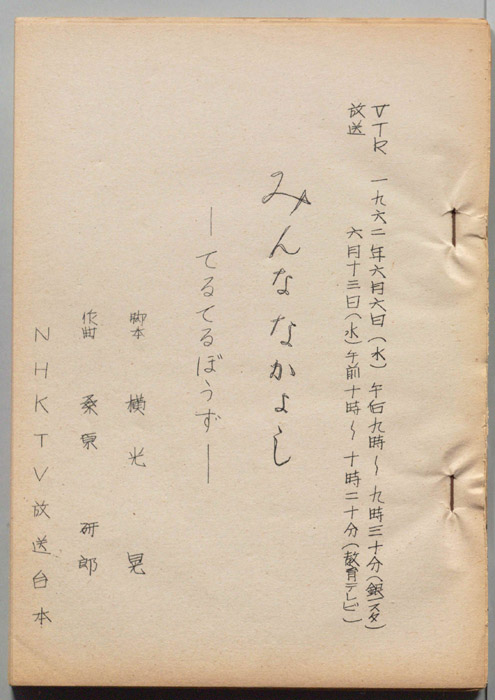 VTR 一九六二年六月六日(水) 午后九時〜九時三十分(銀一スタ)
放送 六月十三日(水)午前十時〜十時二十分(教育テレビ)
みんななかよし
―てるてるぼうず―
脚本 横光 晃
作曲 桑原 研郎
NHKTV放送台本